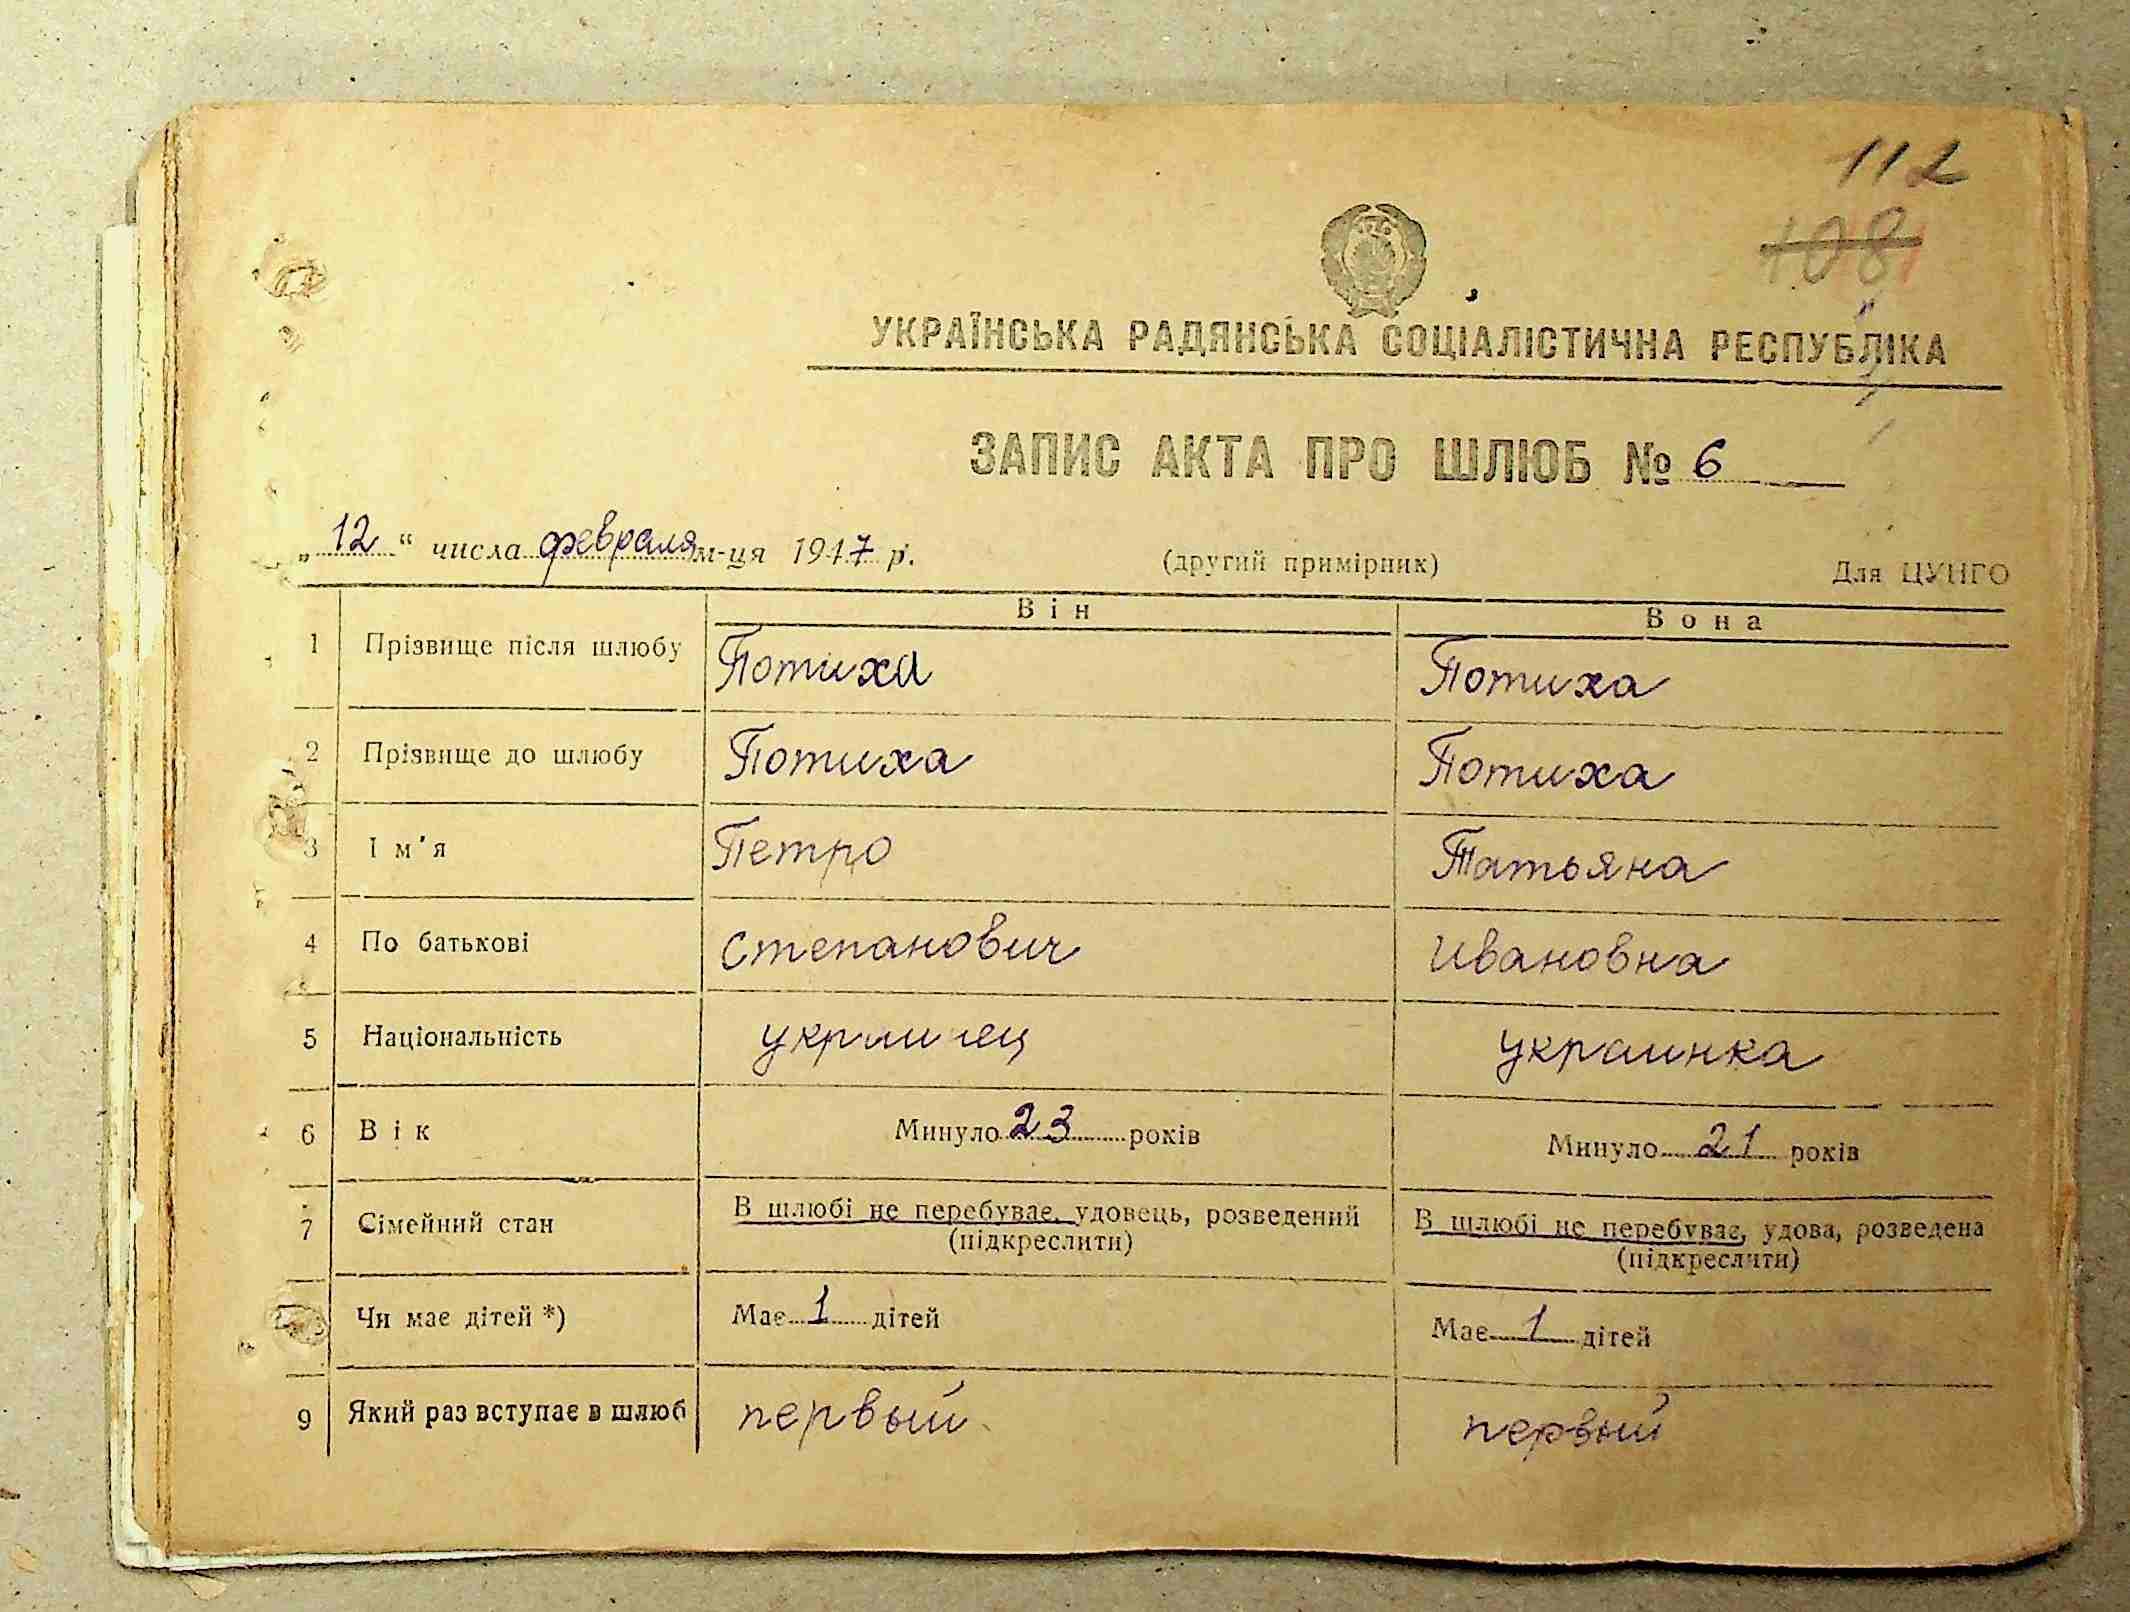 112
108
УКРАЇНСЬКА РАДЯНСЬКА СОЦІАЛІСТИЧНА РЕСПУБЛІКА
ЗАПИС АКТА ПРО ШЛЮБ № 6
„12“ числа февраля м-ця 1947 р.
(другий примірник)
Для ЦУНГО
Він Вона
1 Прізвище після шлюбу Потиха Потиха
2 Прізвище до шлюбу Потиха Потиха
3 Ім'я Петро Татьяна
4 По батькові Степанович Ивановна
5 Національність украинец украинка
6 Вік Минуло 23 років Минуло 21 років
7 Сімейний стан В шлюбі не перебуває, удовець, розведений В шлюбі не перебуває, удова, розведена
(підкреслити) (підкреслити)
Чи має дітей *) Має 1 дітей Має 1 дітей
9 Який раз вступає в шлюб первый первый